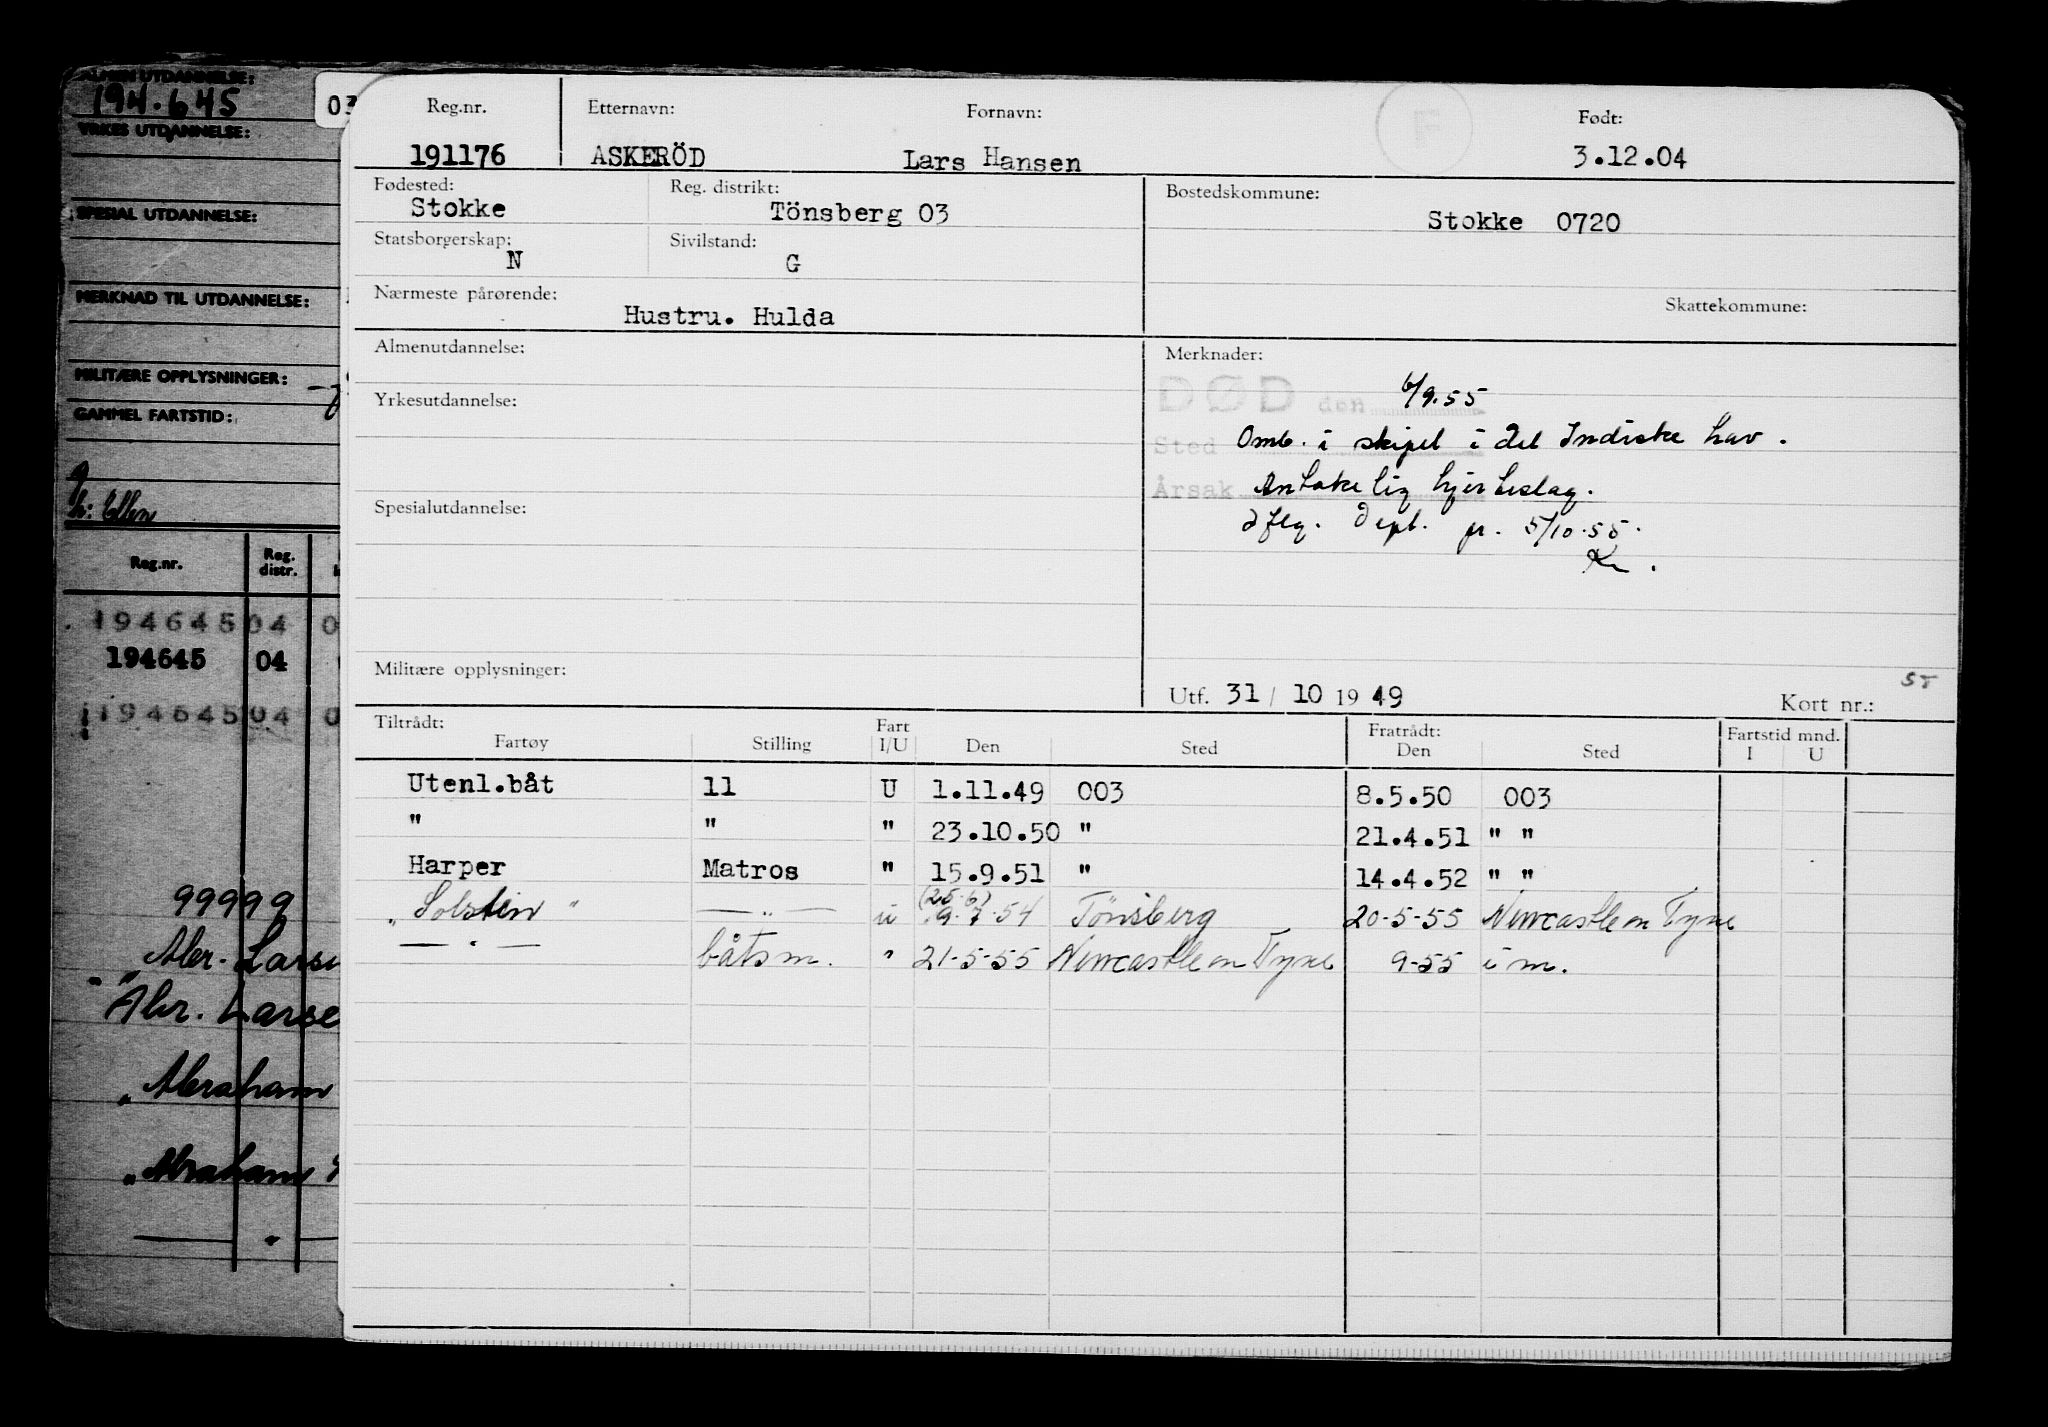 ALMEN UTDANNELSE:
194.645
YRKES UTDANNELSE:
SPESIAL UTDANNELSE:
MERKNAD TIL UTDANNELSE:
MILITÆRE OPPLYSNINGER:
GAMMEL FARTSTID:
g
h: Ellen
Reg.nr. Reg. distr.
194645 04 0
194645 04
194645 04 0
99999
Abr. Larse
Abr. Larse
"Abraham
"Abraham
03
Reg.nr. Etternavn: Fornavn: Født:
191176 ASKERÖD Lars Hansen 3.12.04
Fødested: Reg. distrikt: Bostedskommune:
Stokke Tönsberg 03 Stokke 0720
Statsborgerskap: Sivilstand:
N G
Nærmeste pårørende: Skattekommune:
Hustru. Hulda
Almenutdannelse: Merknader:
DØD den 6/9.55
Yrkesutdannelse:
Sted Omb. i skipet i det Indiske hav.
Årsak Antakelig hjerteslag.
Spesialutdannelse:
Iflg. Dept. pr. 5/10.55.
Kr.
Militære opplysninger:
Utf. 31 / 10 19 49 Kort nr.: 55
Tiltrådt: Fart Fratrådt: Fartstid mnd.
Fartøy Stilling I/U Den Sted Den Sted I U
Utenl.båt 11 U 1.11.49 003 8.5.50 003
" " " 23.10.50 " 21.4.51 " "
Harper Matros " 15.9.51 " 14.4.52 " "
"Solstein" — " — u (25.6) 9-7-54 Tönsberg 20-5-55 Newcastle on Tyne
— " — båtsm. " 21-5-55 Newcastle on Tyne 9-55 i m.